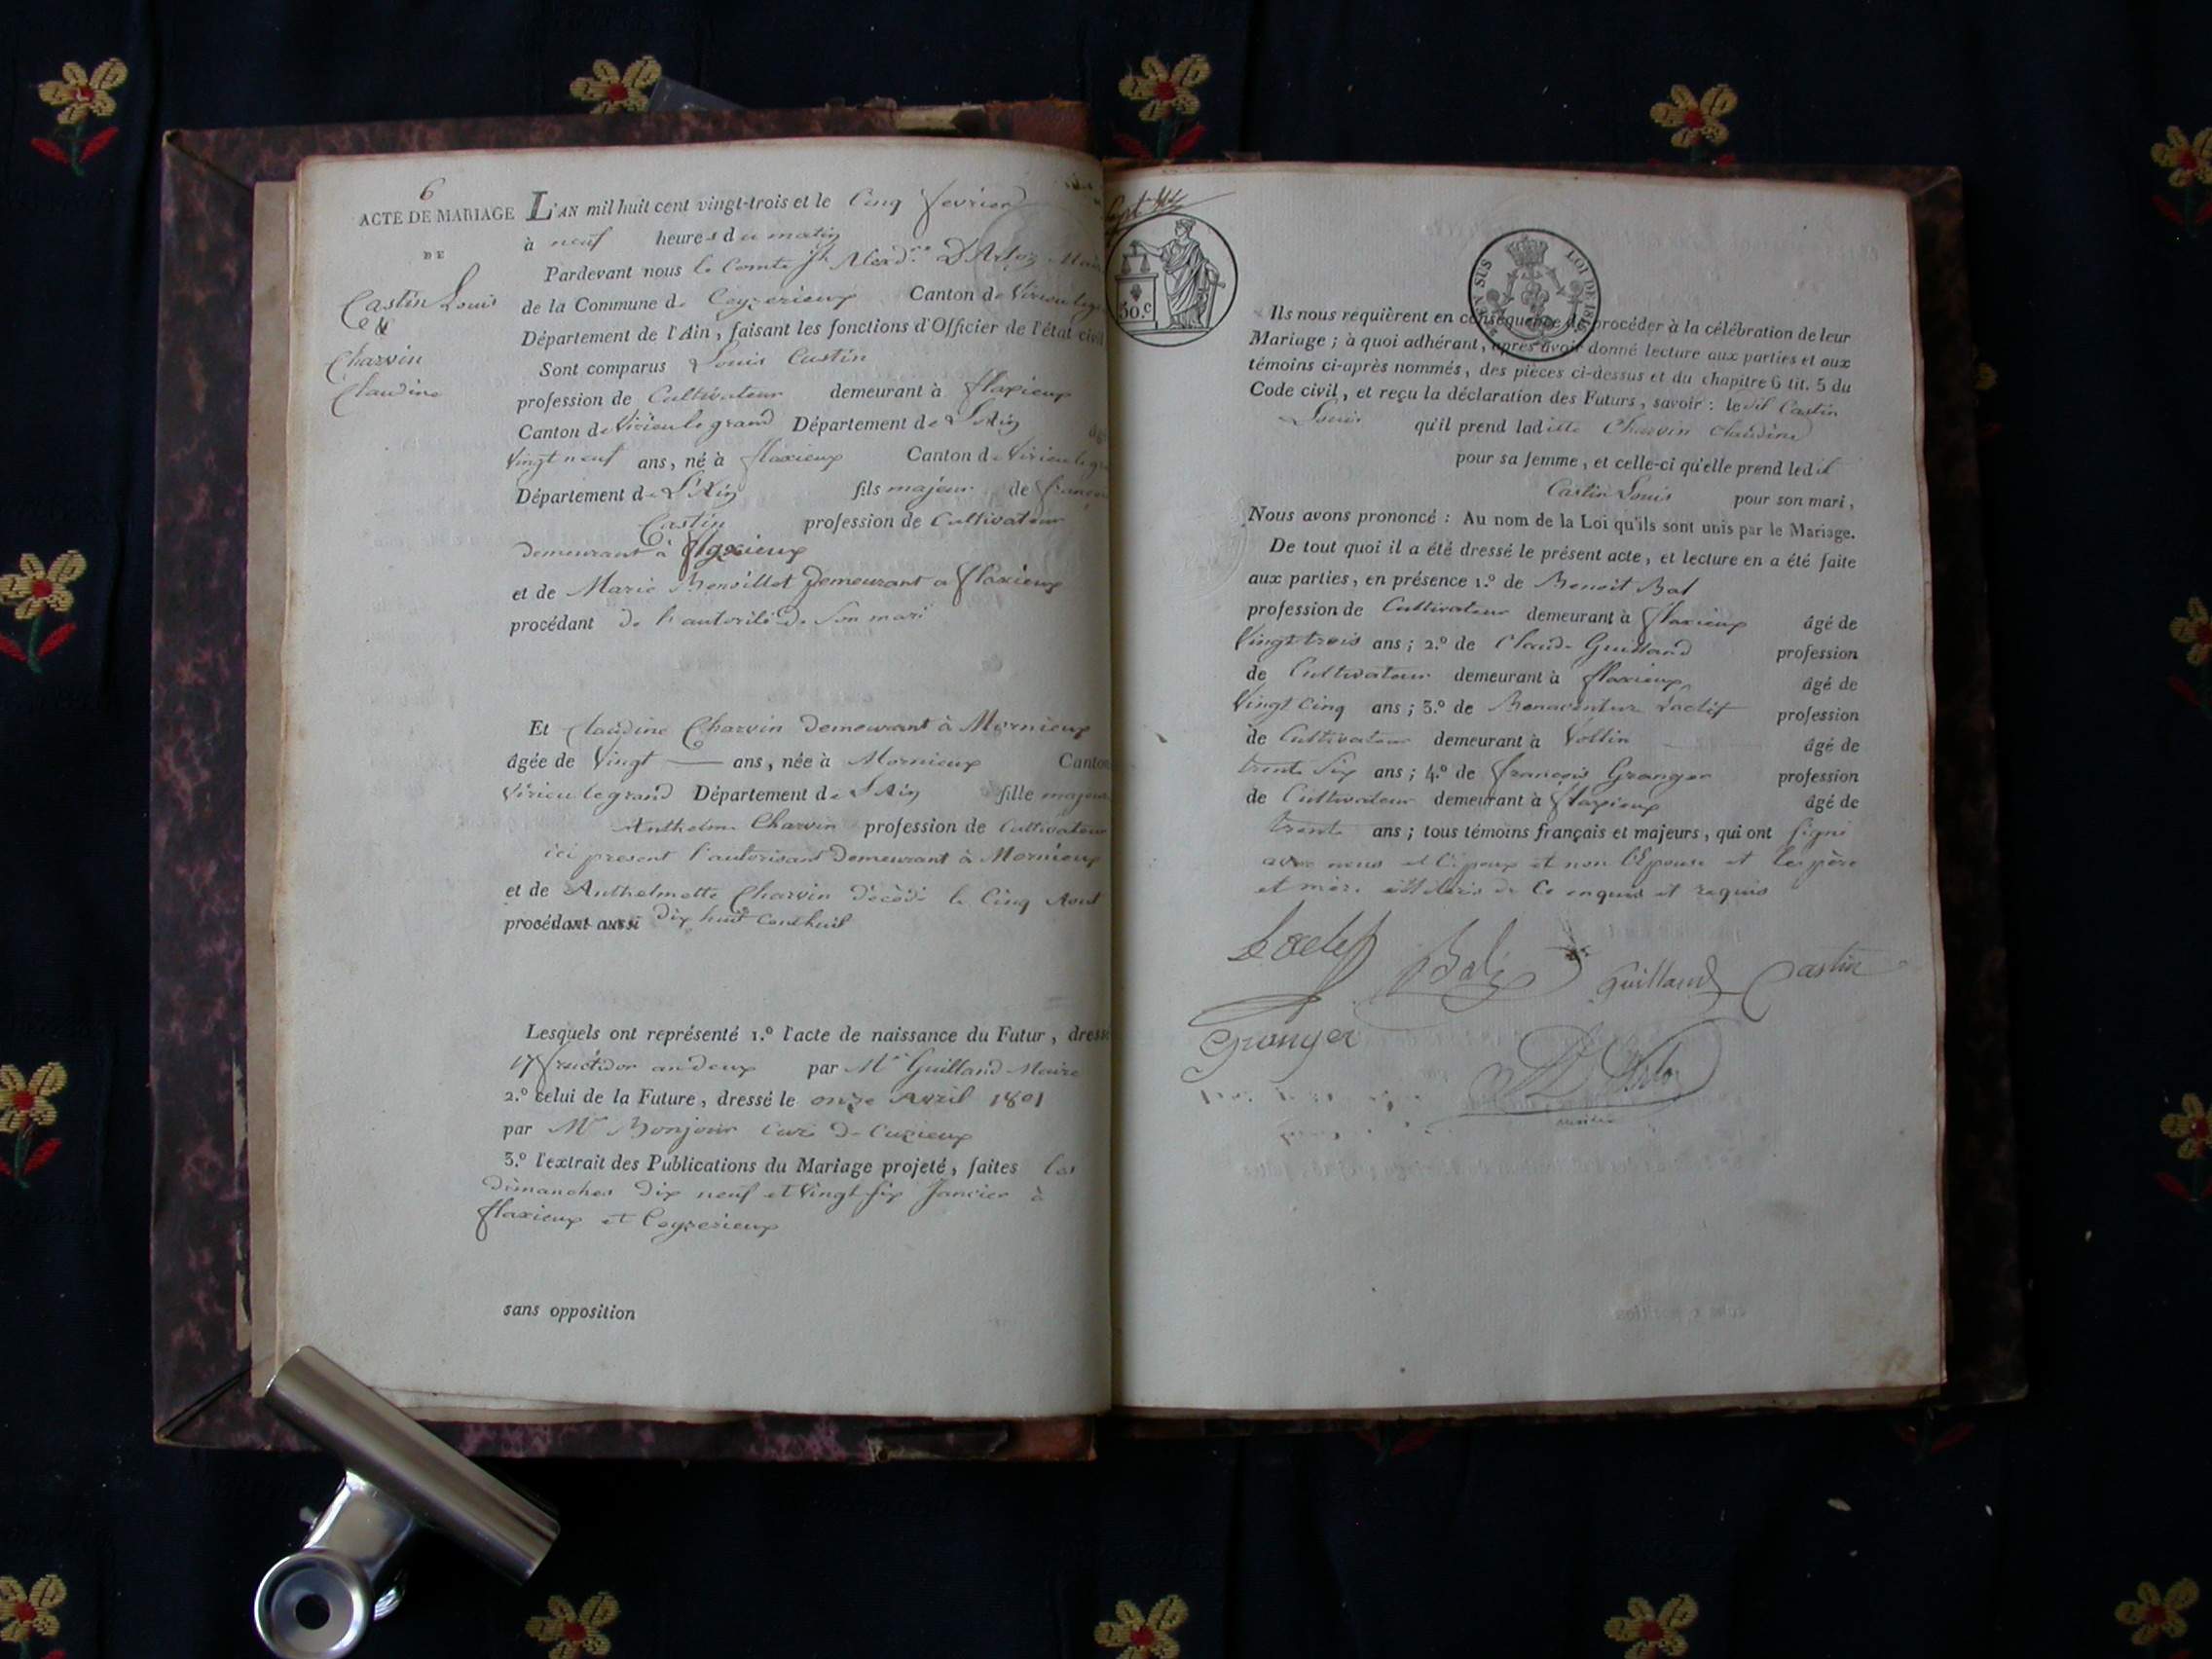 6
ACTE DE MARIAGE
DE
Castin Louis
&
Charvin
Claudine
L'AN mil huit cent vingt-trois et le Cinq fevrier
à neuf heures du matin
Pardevant nous le Comte Jh Alexd.re D'Arloz Maire
de la Commune de Ceyzerieux Canton de Virieu le
Département de l'Ain, faisant les fonctions d'Officier de l'état civil
Sont comparus Louis Castin
profession de Cultivateur demeurant à flaxieux
Canton de Virieu le grand Département de L'Ain
Vingt neuf ans, né à flaxieux Canton de Virieu le
Département de L'Ain fils majeur de
Castin profession de Cultivateur
demeurant à flaxieux
et de Marie demeurant a flaxieux
procédant de l'autorité de son mari
Et Claudine Charvin demeurant à Mornieux
âgée de Vingt — ans, née à Mornieux Canton
Virieu le grand Département de L'Ain fille majeure
Anthelme Charvin profession de Cultivateur
ici present l'autorisant demeurant à Mornieux
et de Anthelmette Charvin décédé le Cinq Aout
procédant aussi dix huit cent huit
Lesquels ont représenté 1.º l'acte de naissance du Futur, dressé
17 fructidor an deux par Mr Guilland Maire
2.º celui de la Future, dressé le onze Avril 1801
par Mr Monjour Curé de Cuzieux
3.º l'extrait des Publications du Mariage projeté, faites les
dimanches dix neuf et Vingt six Janvier à
flaxieux et Ceyzerieux
sans opposition
30.c
EN SUS
LOI DE 1816
Ils nous requièrent en conséquence de procéder à la célébration de leur
Mariage ; à quoi adhérant, après avoir donné lecture aux parties et aux
témoins ci-après nommés, des pièces ci-dessus et du chapitre 6 tit. 5 du
Code civil, et reçu la déclaration des Futurs, savoir : ledit Castin
Louis qu'il prend ladite Charvin Claudine
pour sa femme, et celle-ci qu'elle prend ledit
Castin Louis pour son mari,
Nous avons prononcé : Au nom de la Loi qu'ils sont unis par le Mariage.
De tout quoi il a été dressé le présent acte, et lecture en a été faite
aux parties, en présence 1.º de Benoit Bal
profession de Cultivateur demeurant à flaxieux âgé de
Vingt trois ans ; 2.º de Claude Guilland profession
de Cultivateur demeurant à flaxieux âgé de
Vingt Cinq ans ; 3.º de Benaventure Lactif profession
de Cultivateur demeurant à Vollin âgé de
trente Six ans ; 4.º de françois Granger profession
de Cultivateur demeurant à flaxieux âgé de
trente ans ; tous témoins français et majeurs, qui ont signé
avec nous et l'époux et non l'Epouse et les père
et mère illiterés de Ce enquis et requis
Bal
Guilland
Castin
Granger
D'Arloz
maire